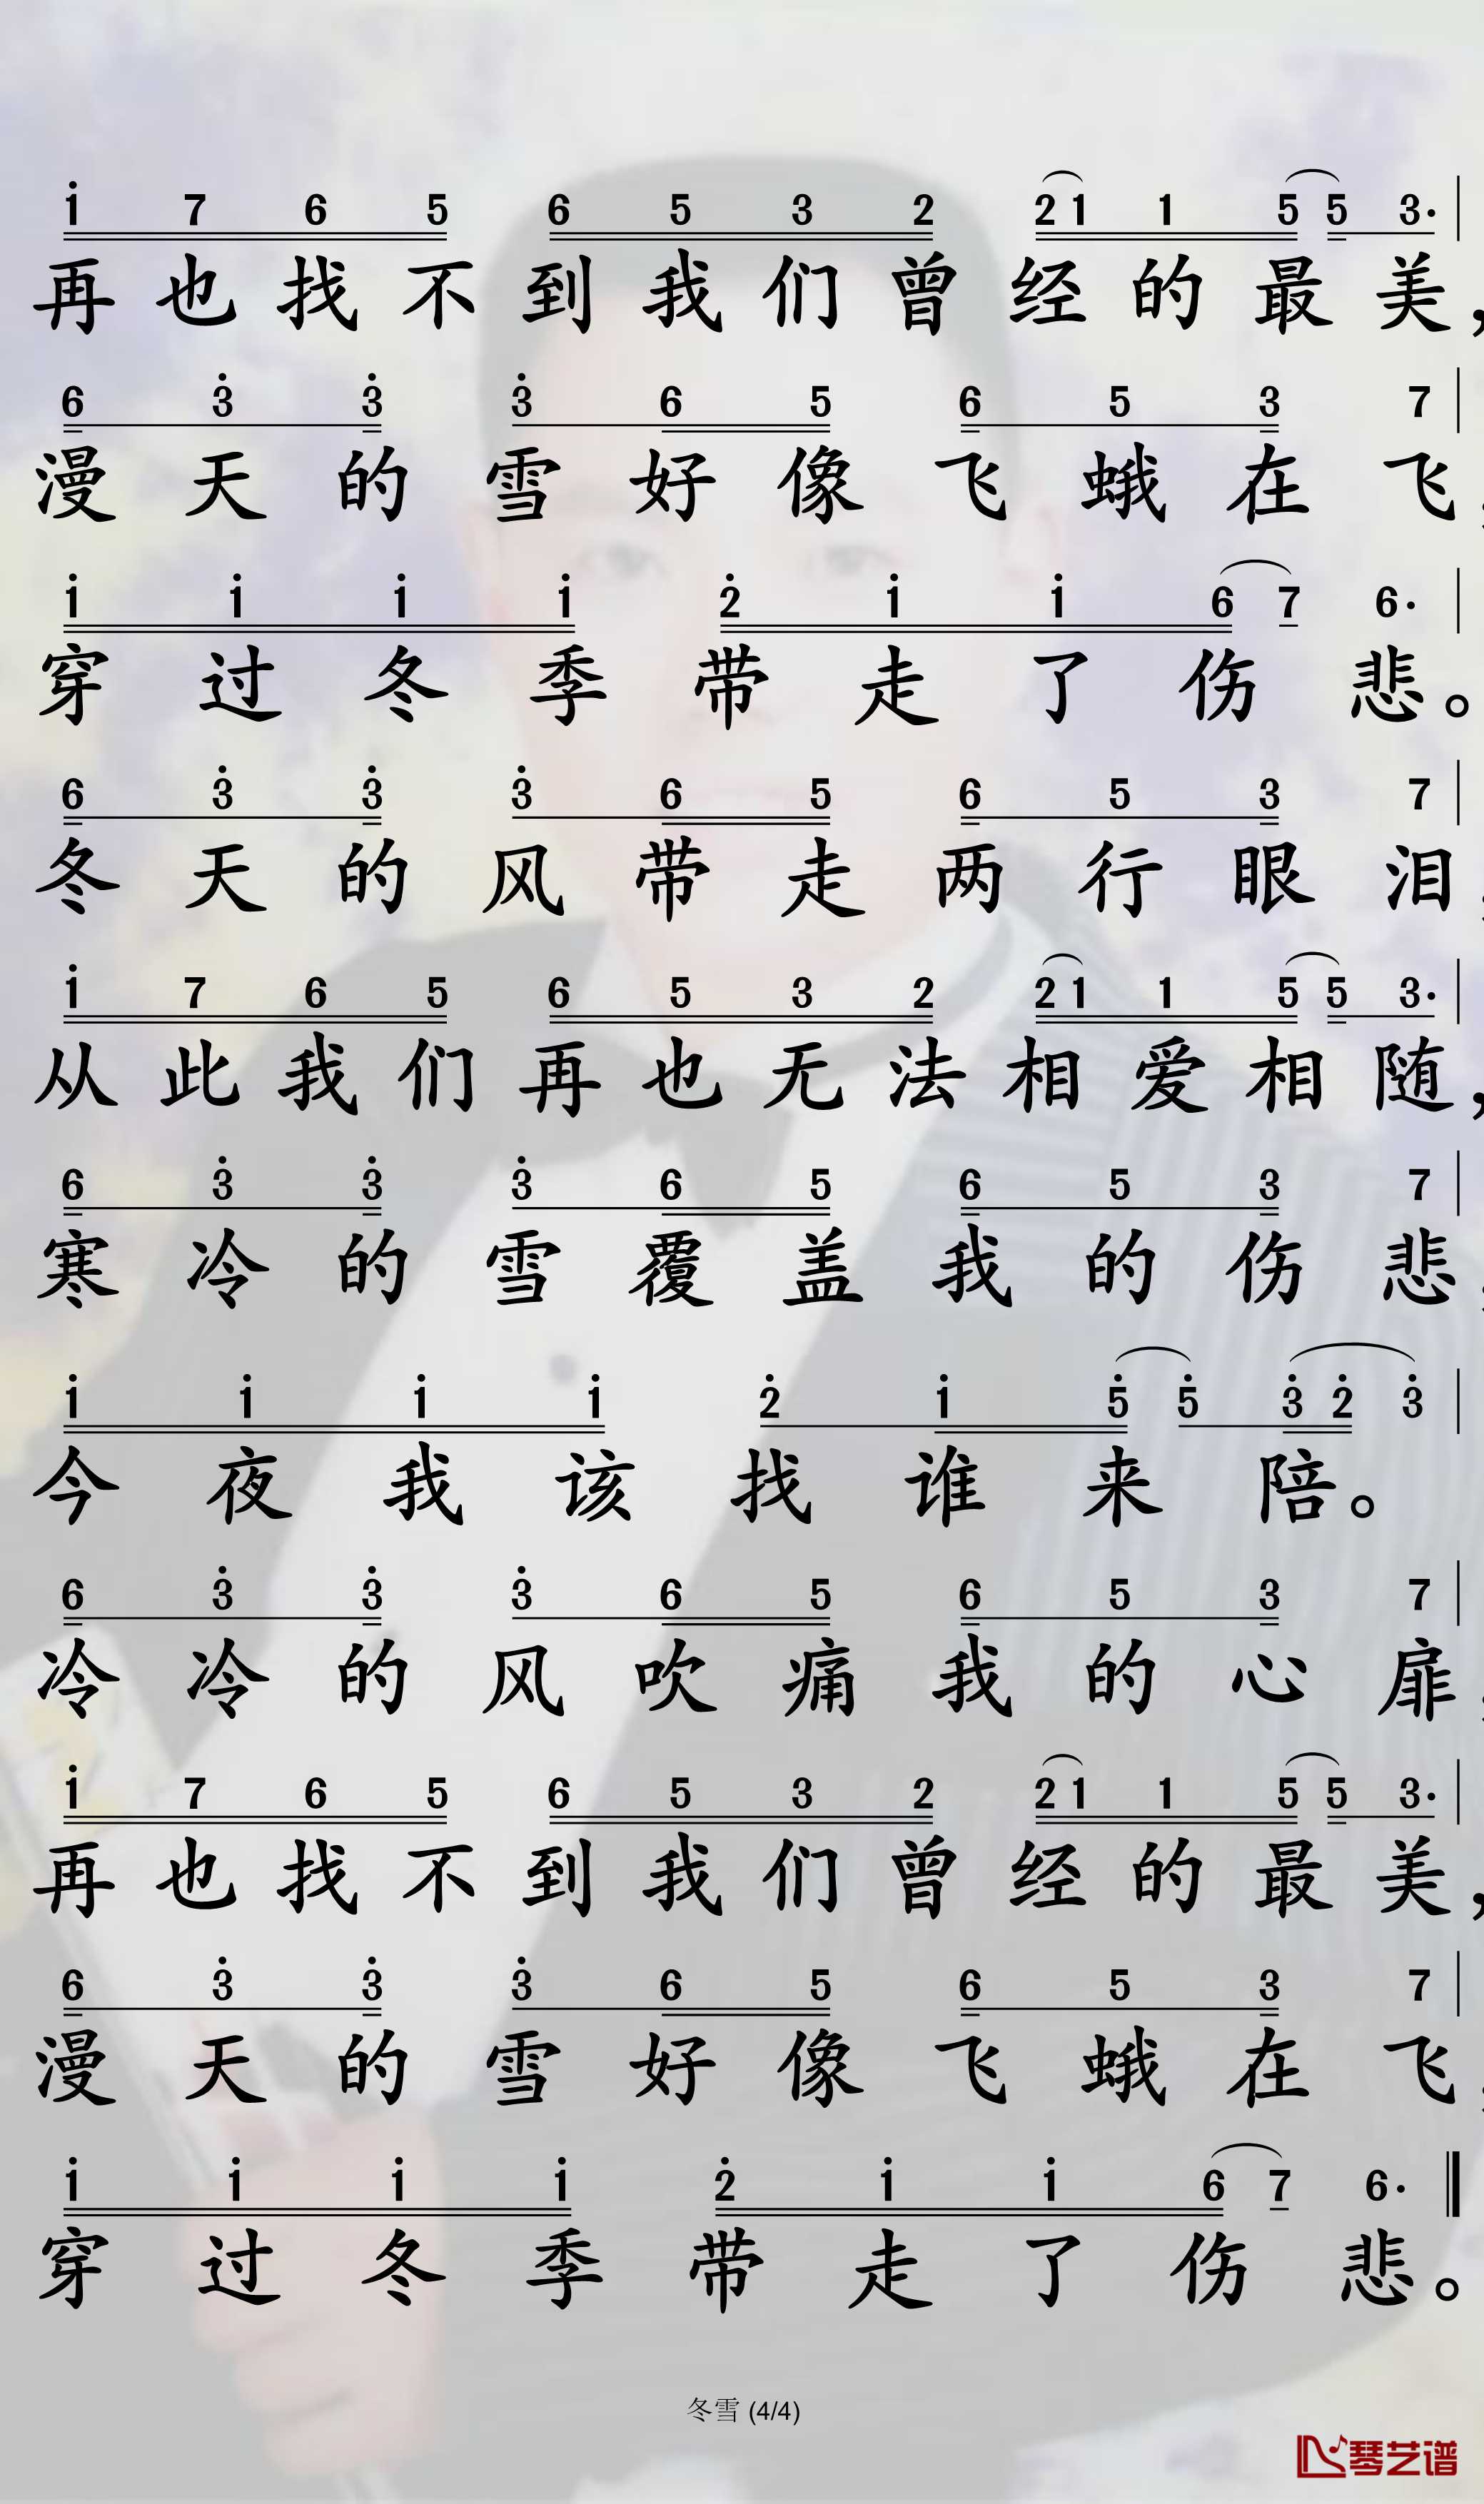 i 7 6 5 6 5 3 2 2 1 1 5 5 3·
再也找不到我们曾经的最美,
6 3̇ 3̇ 3̇ 6 5 6 5 3 7
漫天的雪好像飞蛾在飞,
i i i i 2̇ i i 6 7 6·
穿过冬季带走了伤悲。
6 3̇ 3̇ 3̇ 6 5 6 5 3 7
冬天的风带走两行眼泪,
i 7 6 5 6 5 3 2 2 1 1 5 5 3·
从此我们再也无法相爱相随,
6 3̇ 3̇ 3̇ 6 5 6 5 3 7
寒冷的雪覆盖我的伤悲,
i i i i 2̇ i 5̇ 5̇ 3̇ 2̇ 3̇
今夜我该找谁来陪。
6 3̇ 3̇ 3̇ 6 5 6 5 3 7
冷冷的风吹痛我的心扉,
i 7 6 5 6 5 3 2 2 1 1 5 5 3·
再也找不到我们曾经的最美,
6 3̇ 3̇ 3̇ 6 5 6 5 3 7
漫天的雪好像飞蛾在飞,
i i i i 2̇ i i 6 7 6·
穿过冬季带走了伤悲。
冬雪 (4/4)
琴艺谱